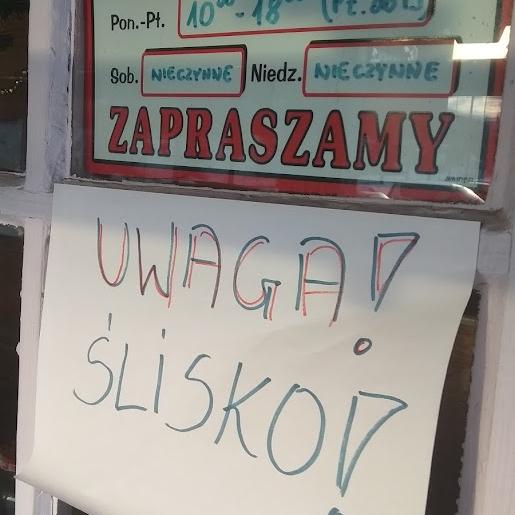 Pon.-Pt. 10⁰⁰ - 18⁰⁰
Sob. NIECZYNNE Niedz. NIECZYNNE
ZAPRASZAMY
UWAGA!
ŚLISKO!